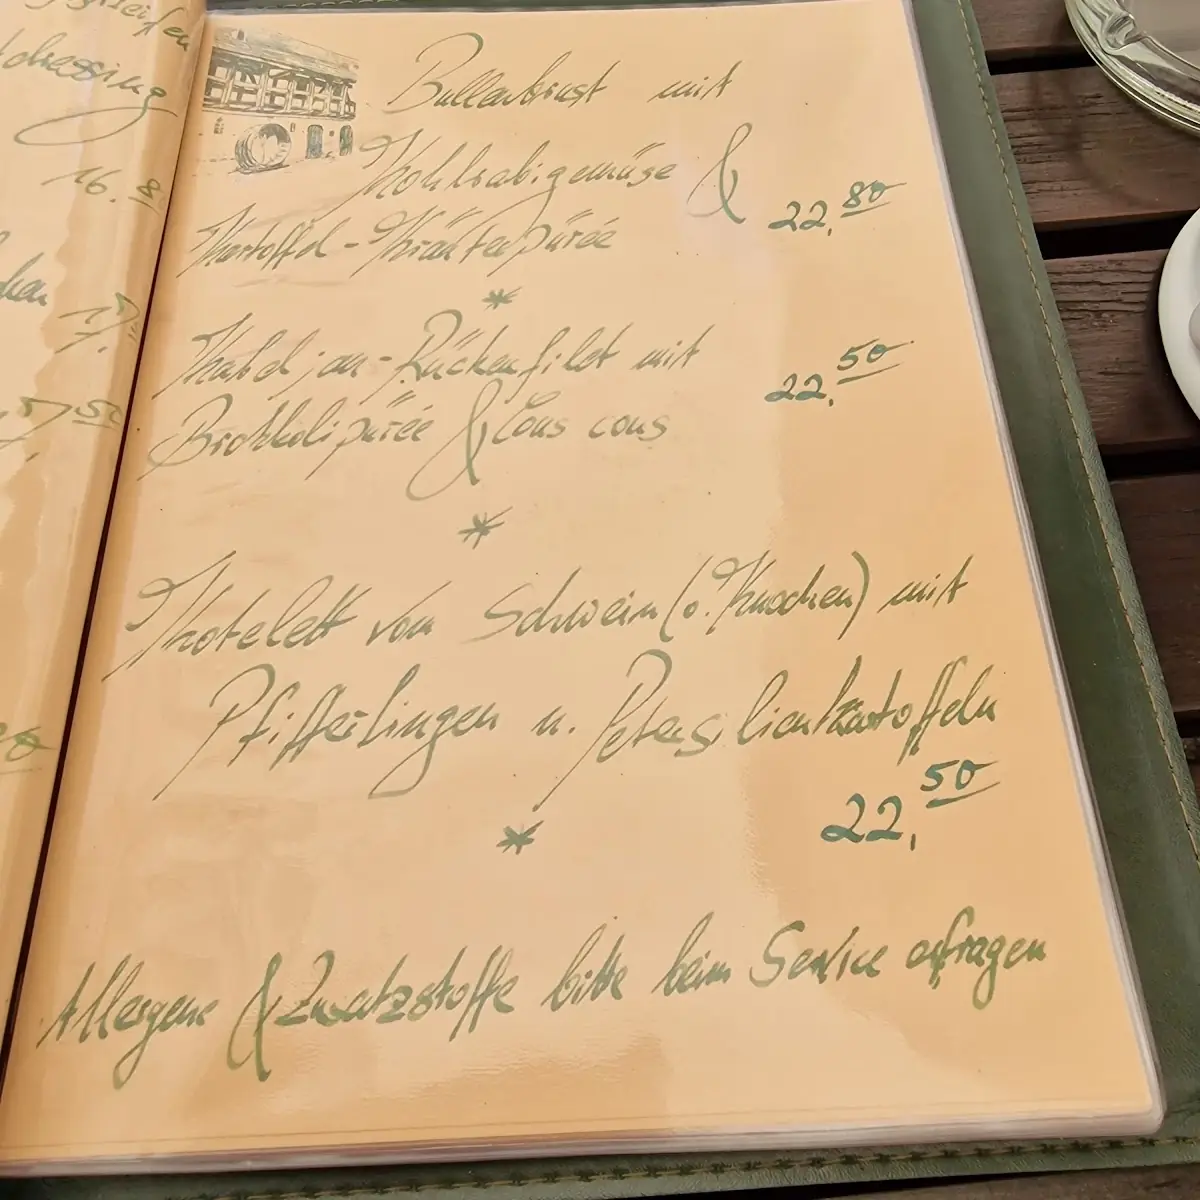 dressing
16.
Bullenbrust mit
Kohlrabigemüse &
22,80
Kartoffel-Kräuterpüree
*
Kabeljau-Rückenfilet mit
22,50
Brokkolipüree & Cous cous
*
Kotelett vom Schwein (o. Knochen) mit
Pfifferlingen u. Petersilienkartoffeln
22,50
*
Allergene & Zusatzstoffe bitte beim Service erfragen